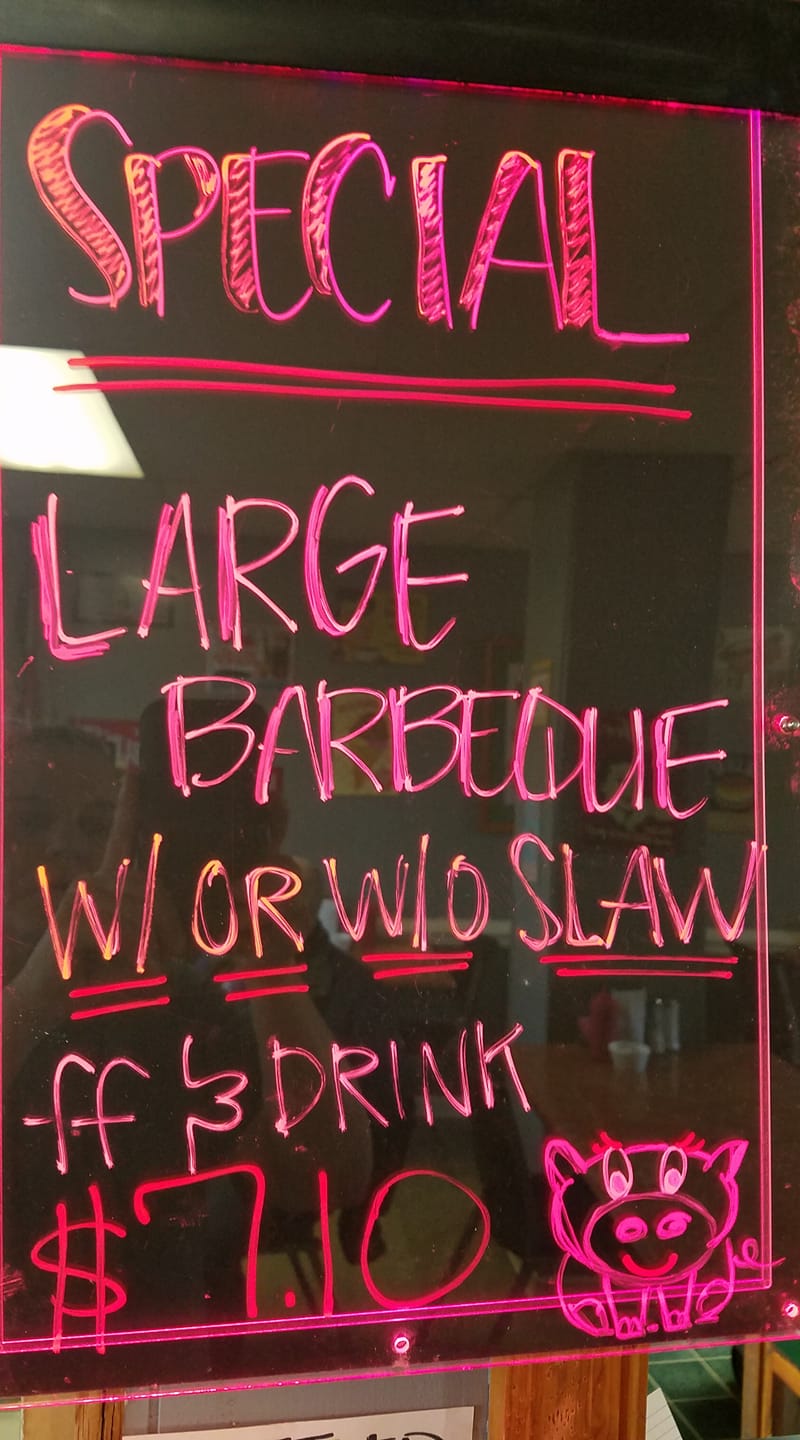 SPECIAL
LARGE
BARBEQUE
W/ OR W/O SLAW
ff & DRINK
$7.10